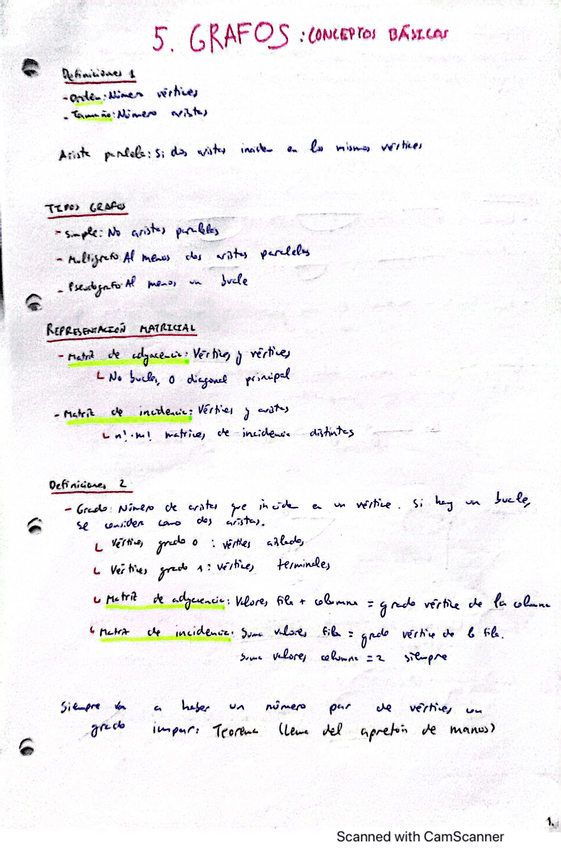 5. GRAFOS: CONCEPTOS BÁSICOS
Definiciones 1
- Orden: Número vértices
- Tamaño: Número aristas
Arista paralela: Si dos aristas inciden en los mismos vértices
TIPOS GRAFO
- Simple: No aristas paralelas
- Multigrafo: Al menos dos aristas paralelas
- Pseudografo: Al menos un bucle
REPRESENTACIÓN MATRICIAL
- Matriz de adyacencia: Vértices y vértices
No bucles, 0 diagonal principal
- Matriz de incidencia: Vértices y aristas
n!·m! matrices de incidencia distintas
Definiciones 2
- Grado: Número de aristas que inciden en un vértice. Si hay un bucle,
se consideran como dos aristas.
Vértices grado 0: vértices aislados
Vértices grado 1: vértices terminales
Matriz de adyacencia: Valores fila + columna = grado vértice de la columna
Matriz de incidencia: Suma valores fila = grado vértice de la fila.
Suma valores columna = 2 siempre
Siempre va a haber un número par de vértices con
grado impar: Teorema (Lema del apretón de manos)
1.
Scanned with CamScanner